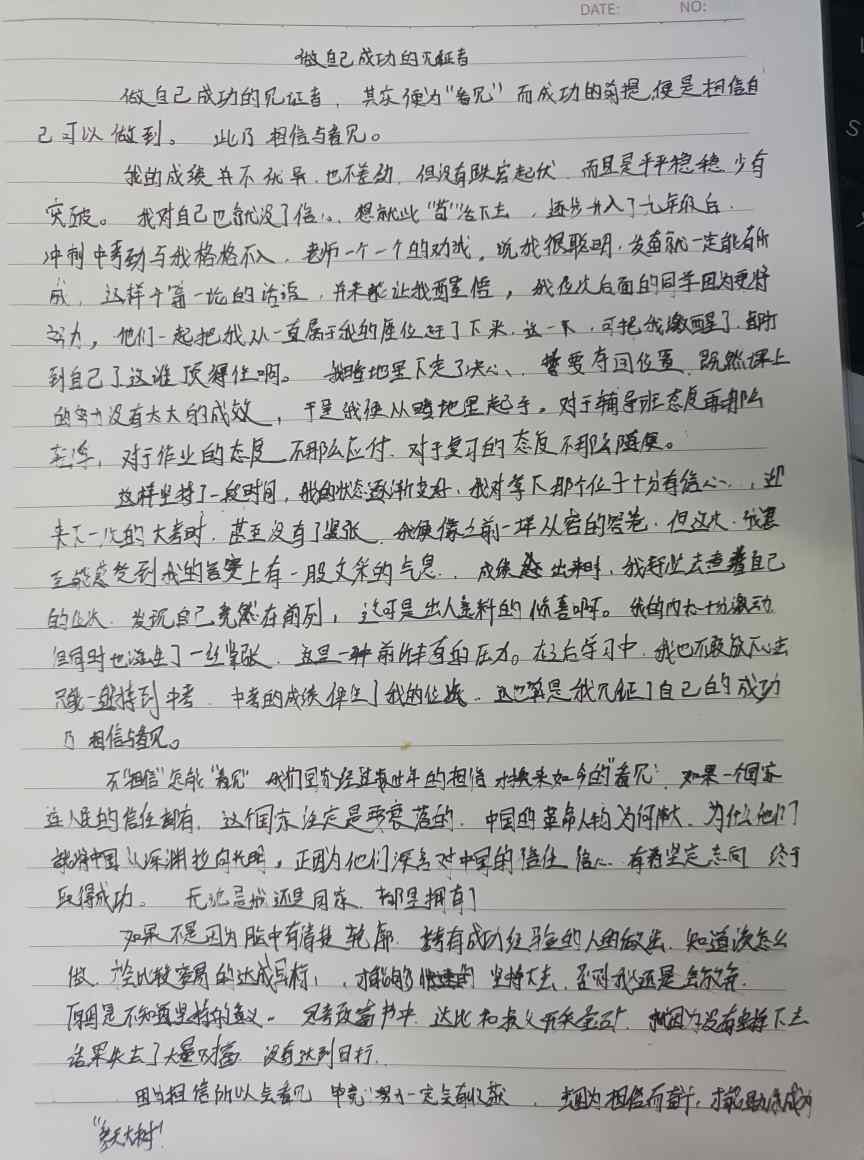 DATE: NO:
做自己成功的见证者
做自己成功的见证者，其实便为“看见”而成功的前提便是相信自
己可以做到。此乃相信与看见。
我的成绩并不优异，也不差劲，但没有跌宕起伏，而且是平平稳稳少有
突破。我对自己也就没了信心，想就此“苟”活下去，逐步升入了九年级后，
冲刺中考动与我格格不入，老师一个一个的劝戒，说我很聪明，发奋就一定能有所
成，这样千篇一论的话语，并未能让我醒悟，我位次后面的同学因为更将
努力，他们一起把我从一直属于我的座位赶了下来，这一下，可把我激醒了，
到自己了这谁顶得住啊。我暗地里下定了决心，誓要夺回位置，既然课上
的努力没有太大的成效，于是我便从暗地里起手。对于辅导班态度再那么
对于作业的态度不那么应付，对于复习的态度不那么随便。
这样坚持了一段时间，我的状态逐渐变好，我对拿下那个位子十分有信心，迎
来下一次的大考时，甚至没有了紧张，我便像之前一样从容的答卷，但这次，我甚
至能感受到我的答案上有一股文采的气息，成绩出来时，我赶忙去查看自己
的位次，发现自己竟然在前列，这可是出人意料的惊喜啊。我的内心十分激动
但同时也滋生了一丝紧张，这是一种前所未有的压力。在之后学习中，我也不敢放下心去
只能一直坚持到中考，中考的成绩保住了我的位次，这也算是我见证了自己的成功
乃相信与看见。
不“相信”怎能“看见”我们国家经过数世年的相信才换来如今的“看见”，如果一个国家
连人民的信任都有，这个国家注定是要衰落的，中国的革命人物为何伟大，为什么他们
能将中国从深渊拉向光明，正因为他们深名对中国的信任信心，有着坚定志向，终于
取得成功。无论是我还是国家，都是拥有了
如果不是因为脑中有清楚轮廓，拷有成功经验的人的做法，知道该怎么
做，比较容易的达成目标，才能够快速的坚持下去，否则我还是会放弃，
原因是不知道坚持的意义。思考致富书中，达比和叔父开采金矿，就因为没有坚持下去
结果失去了大量财富，没有达到目标。
因为相信所以会看见，毕竟“努力一定会有收获，因为相信而看，才能助你成为
“参天大树”